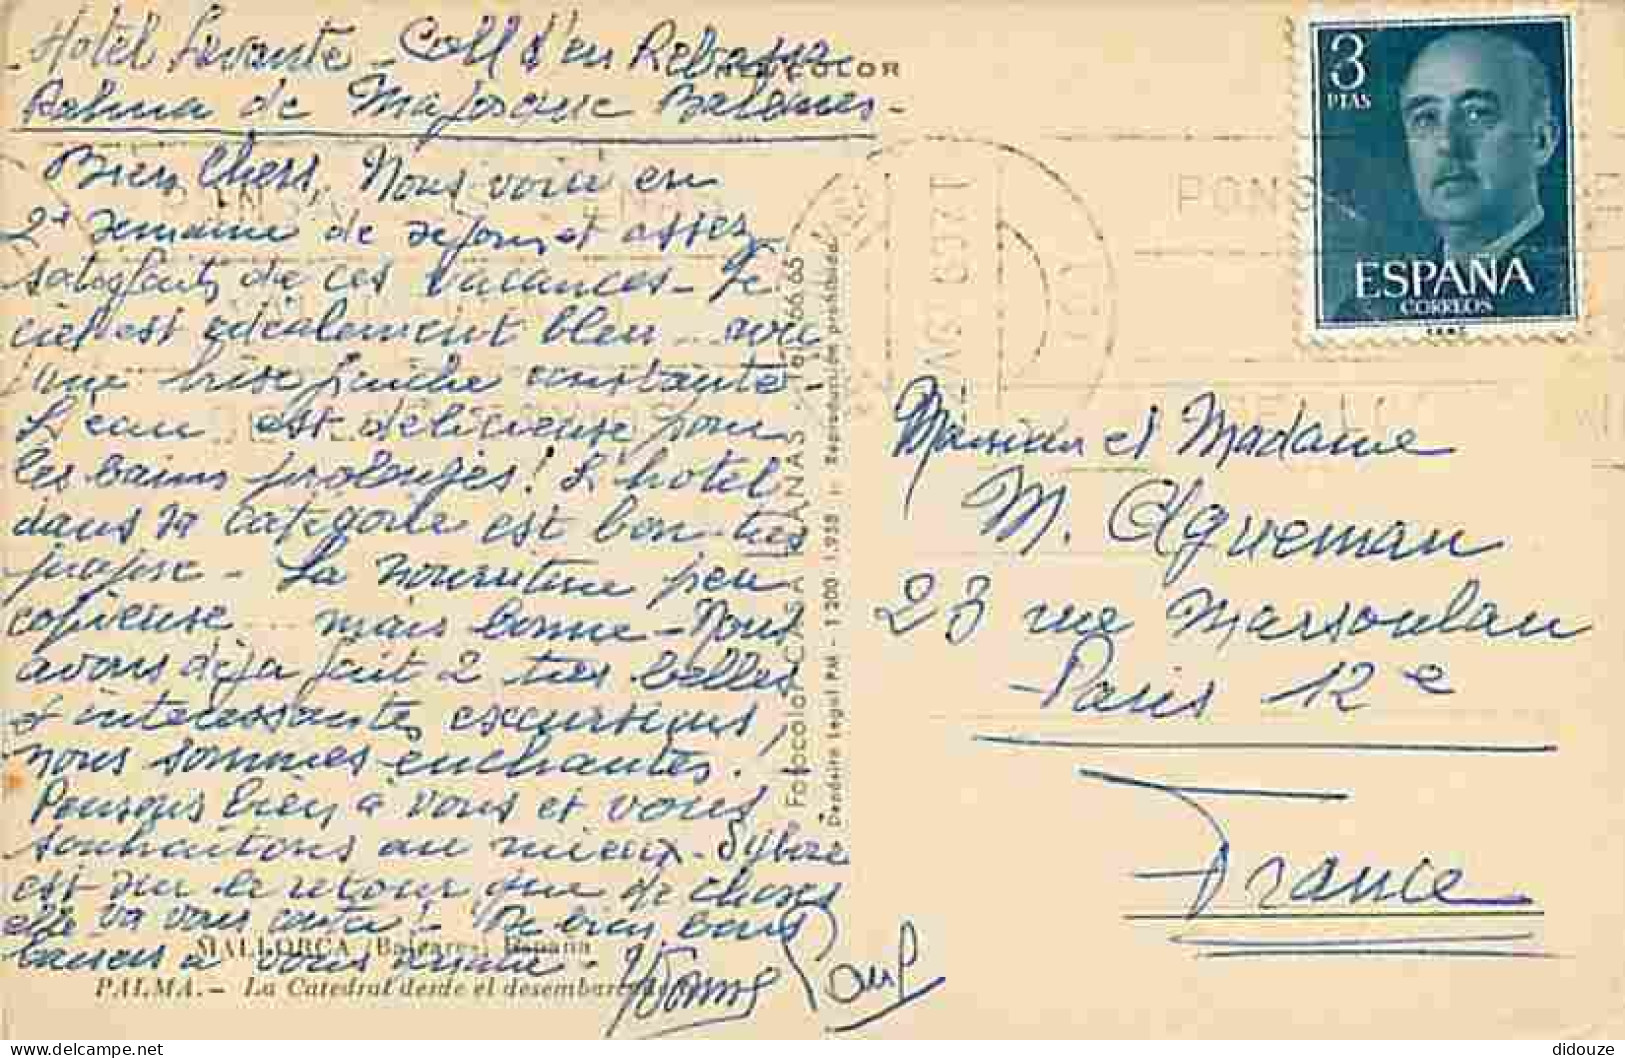 Hotel Levante - Coll d'en Rebassa
Palma de Majorque Baléares -
Bien Chers, Nous voici en
2e semaine de séjour et assez
satisfaits de ces vacances - Le
ciel est idéalement bleu avec
une brise fraiche constante -
L'eau est délicieuse pour
les bains prolongés! L'hotel
dans sa catégorie est bon très
propre - La nourriture peu
copieuse mais bonne - Nous
avons déjà fait 2 très belles
et intéressantes excursions,
nous sommes enchantés.
Pensons bien à vous et vous
souhaitons au mieux -
est sur le retour que de choses
elle va vous conter! De bien bons
baisers à vous
Yvonne Paul
COLOR
Fotocolor CASA PLANAS - Tel. 66 65
Depósito Legal PM - 1200 - Reproducción prohibida
MALLORCA (Baleares) España
PALMA. - La Catedral desde el desembarcadero
3
PTAS
ESPAÑA
CORREOS
PONS
Monsieur et Madame
M. Agueman
23 rue Marsoulan
Paris 12e
France
delcampe.net
didouze